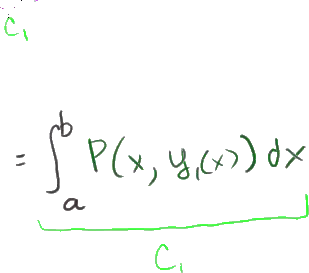 C₁
= ∫ₐᵇ P(x, y₁(x)) dx
C₁